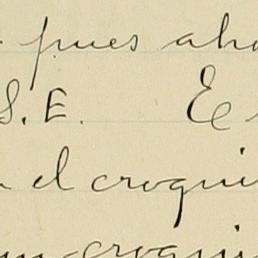 pues aho
S.E. E
el croqui
croqui